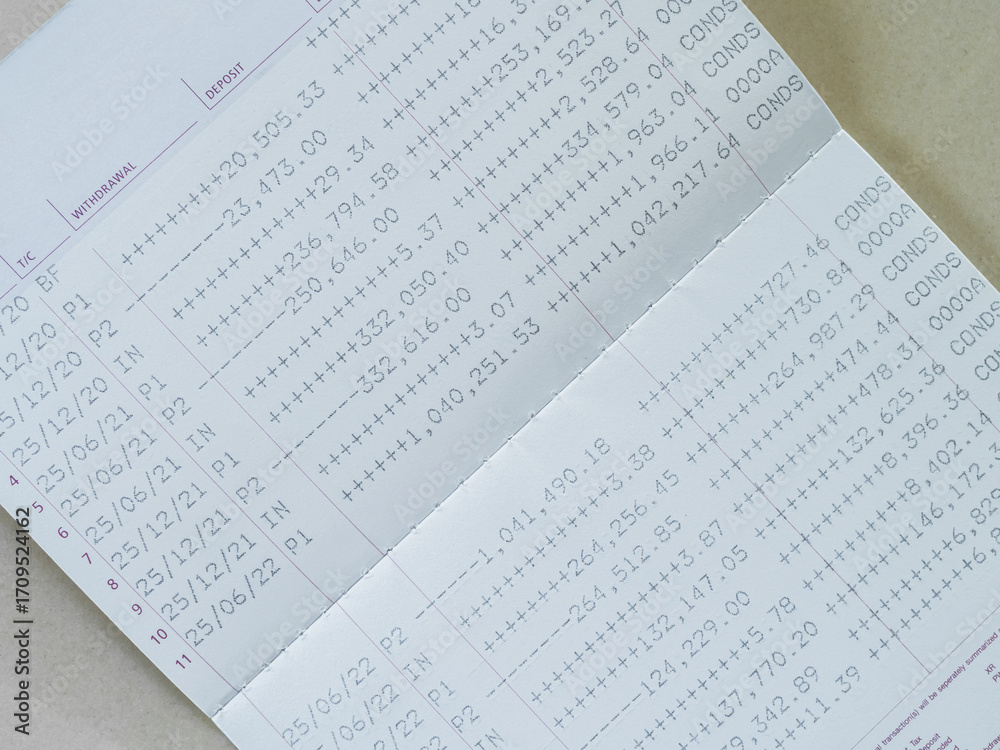 T/C WITHDRAWAL DEPOSIT
/20 BF
12/20 P1 ++++++++20,505.33
5/12/20 P2 -----23,473.00
4 25/12/20 IN +++++++++++29.34 ++++++++16,3
5 25/06/21 P1 +++++++236,794.58 +++++++253,169.2
6 25/06/21 P2 -----250,646.00 +++++++++2,523.27 000
7 25/06/21 IN ++++++++++++5.37 +++++++++2,528.64 CONDS
8 25/12/21 P1 +++++++332,050.40 +++++++334,579.04 CONDS
9 25/12/21 P2 -----332,616.00 +++++++++1,963.04 0000A
10 25/12/21 IN ++++++++++++3.07 +++++++++1,966.11 CONDS
11 25/06/22 P1 +++++1,040,251.53 +++++1,042,217.64
25/06/22 P2 -----1,041,490.18 ++++++++++727.46 CONDS
/06/22 IN ++++++++++++3.38 ++++++++++730.84 0000A
/22 P1 +++++++264,256.45 +++++++264,987.29 CONDS
P2 -----264,512.85 ++++++++++474.44 CONDS
IN ++++++++++++3.87 ++++++++++478.31 0000A
+++++++132,147.05 +++++++132,625.36 CONDS
-----124,229.00 +++++++++8,396.36 CO
++++++++++++5.78 +++++++++8,402.14
+++137,770.20 +++++++146,172.3
39,342.89 +++++++++6,82
+++11.39 +++++++++6,
transaction(s) will be seperately summarized
XR
Tax